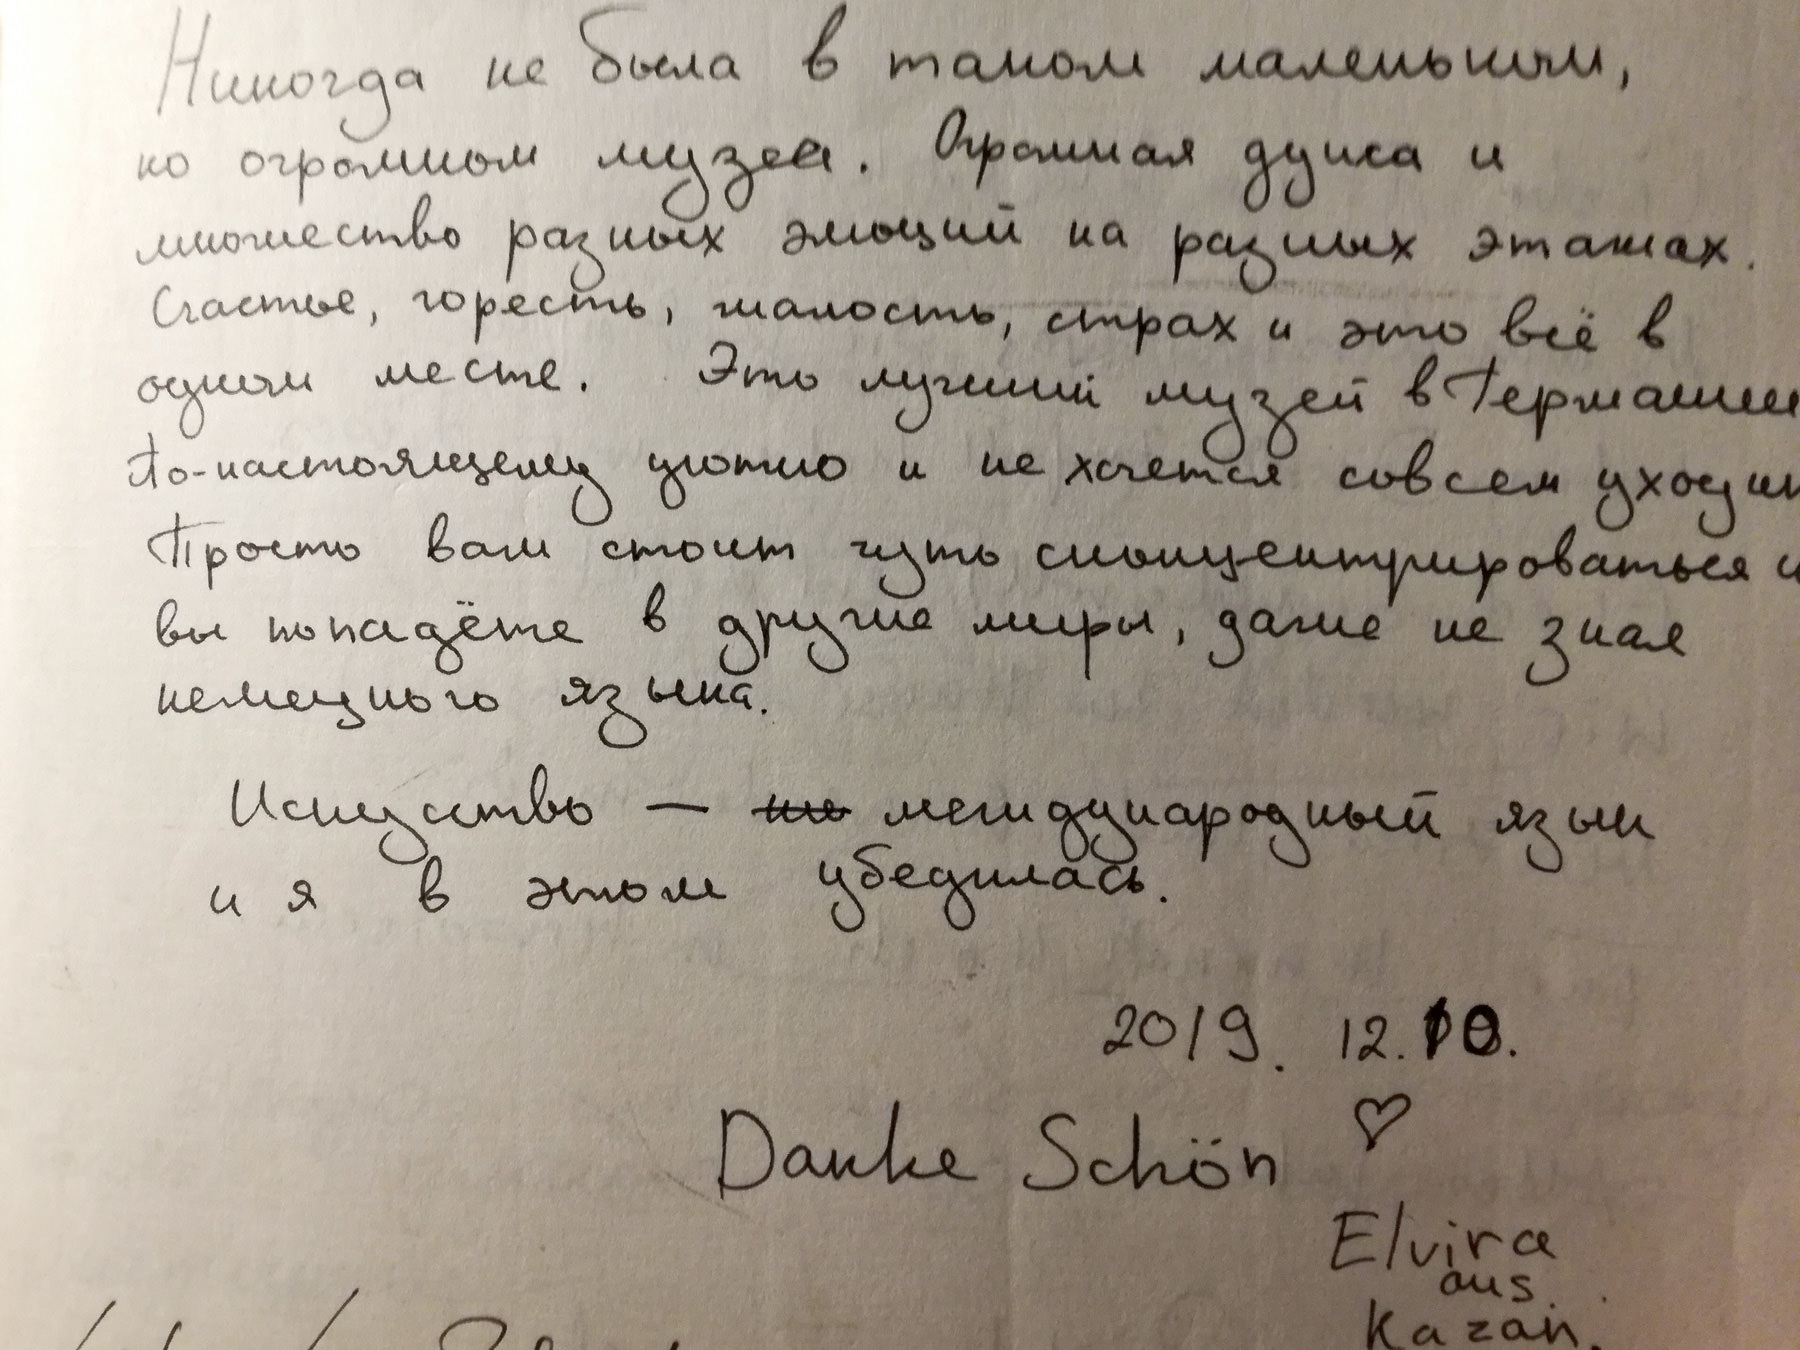 Никогда не была в таком маленьком,
но огромном музеи. Огромная душа и
множество разных эмоций на разных этажах.
Счастье, горесть, жалость, страх и это всё в
одном месте. Это лучший музей в Германии
По-настоящему уютно и не хочется совсем уходит
Просто вам стоит чуть сконцентрироваться и
вы попадёте в другие миры, даже не зная
немецкого языка.
Искусство — международный язык
и я в этом убедилась.
2019. 12.10.
Danke Schön ♡
Elvira
aus
Kazan.